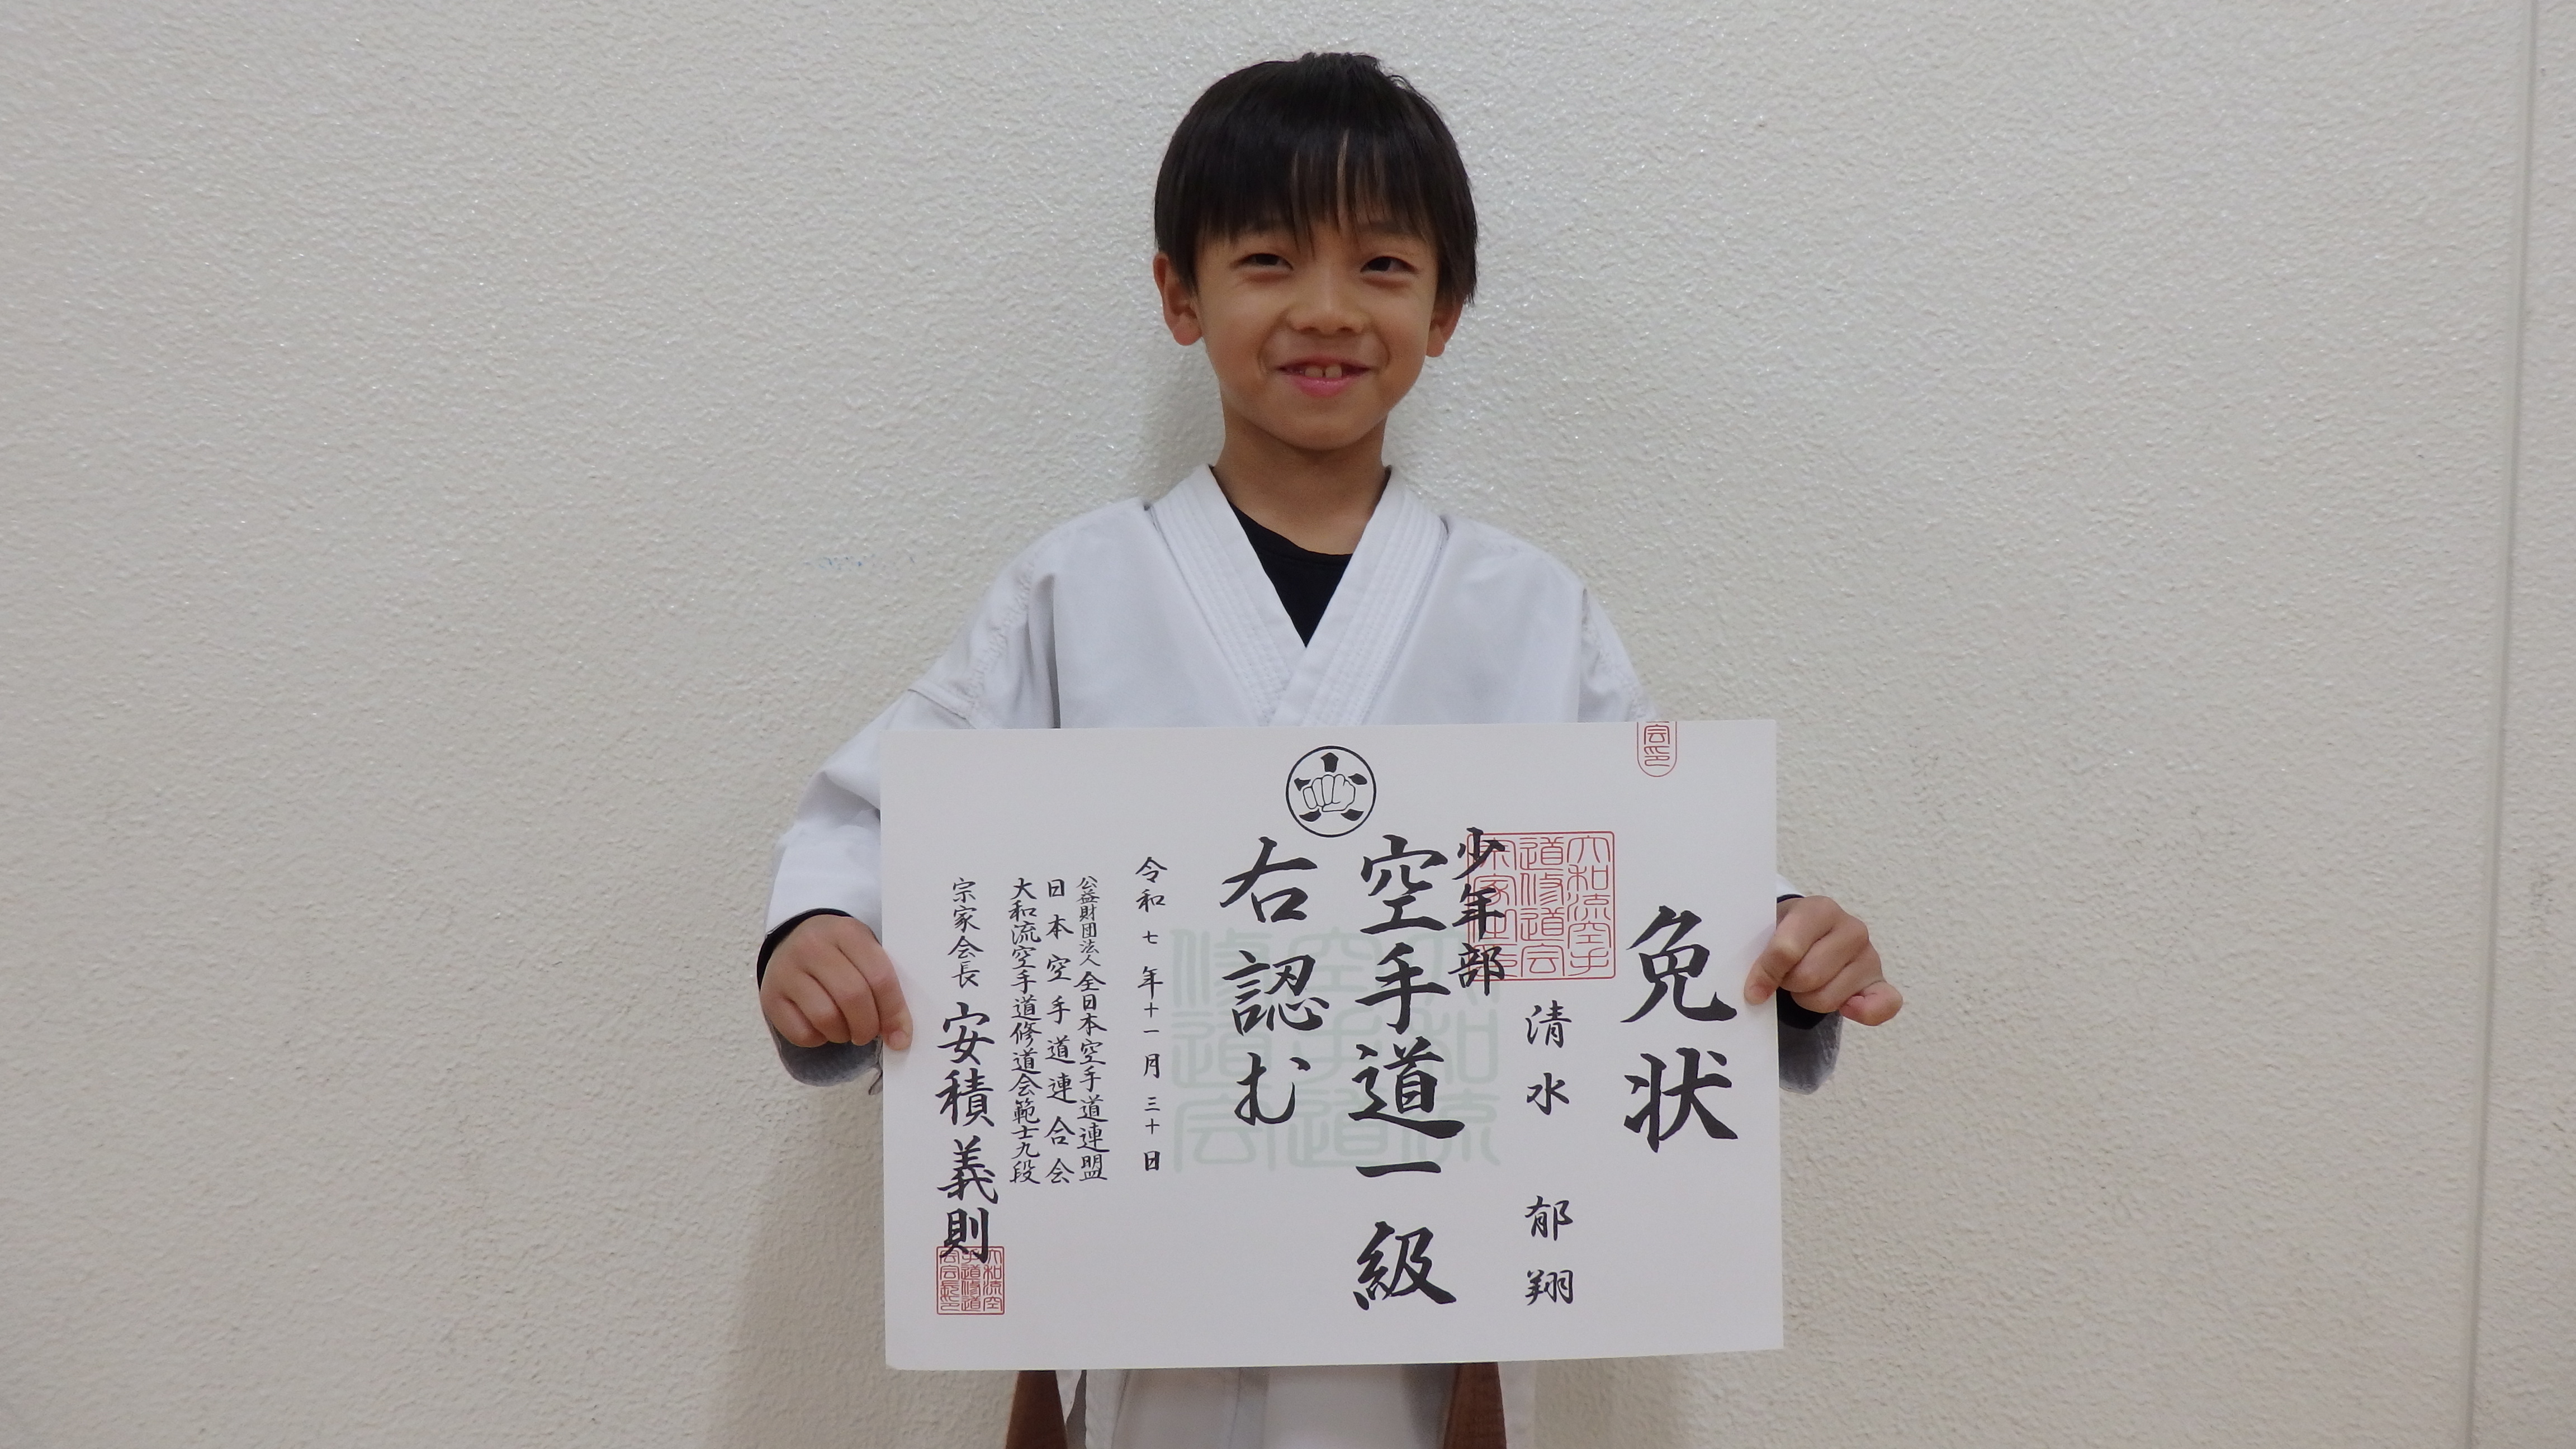 免状
清水 郁翔
少年部
空手道一級
右認む
令和七年十一月三十日
公益財団法人全日本空手道連盟
日本空手道連合会
大和流空手道修道会範士九段
宗家会長 安積義則
大和流空手道修道会